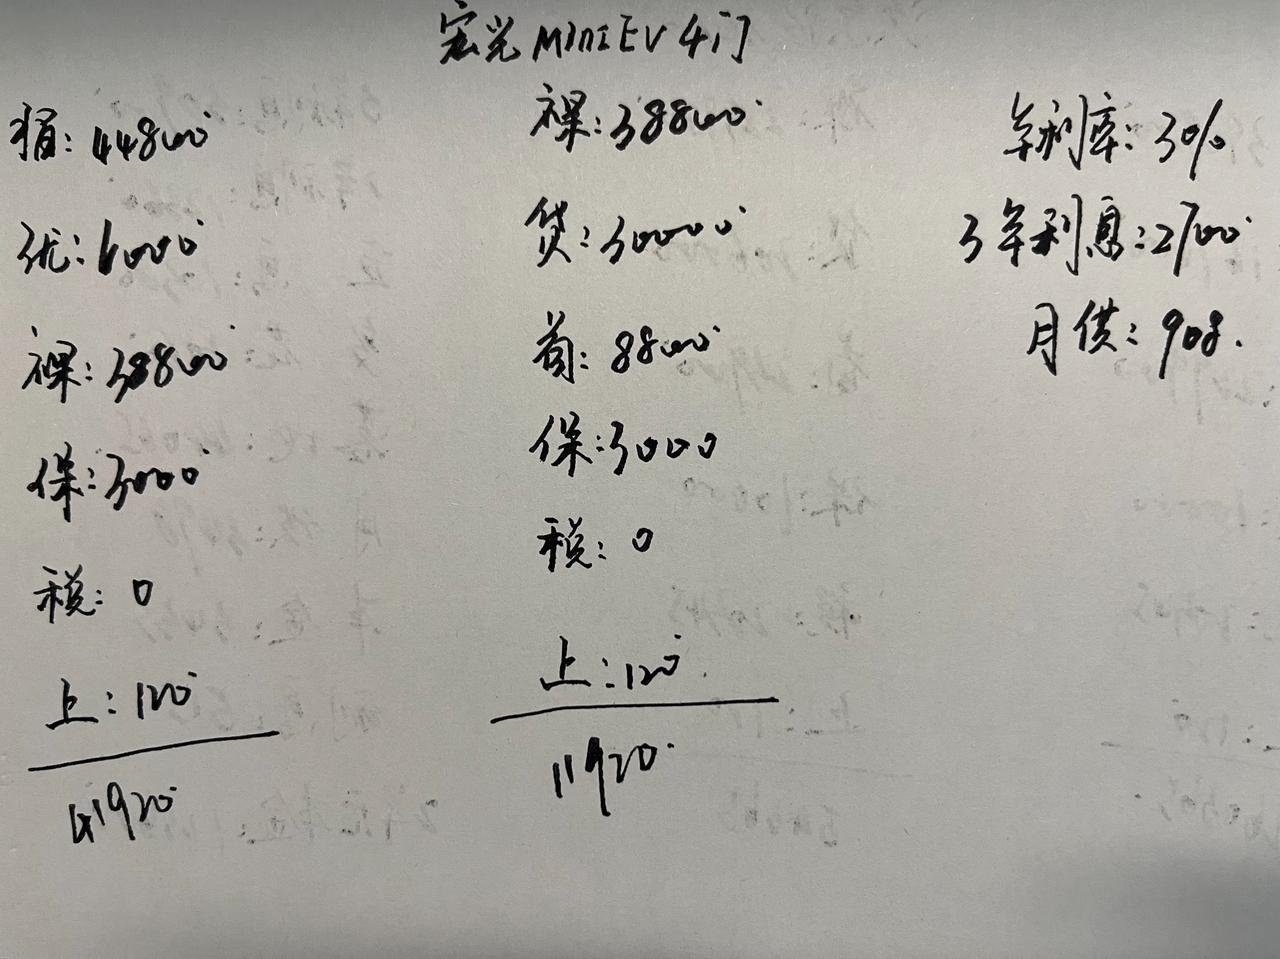 宏光MINIEV4门
指: 44800
优: 6000
裸: 38800
保: 3000
税: 0
上: 120
41920
裸: 38800
贷: 30000
首: 8800
保: 3000
税: 0
上: 120
11920
年利率: 3%
3年利息: 2700
月供: 908.